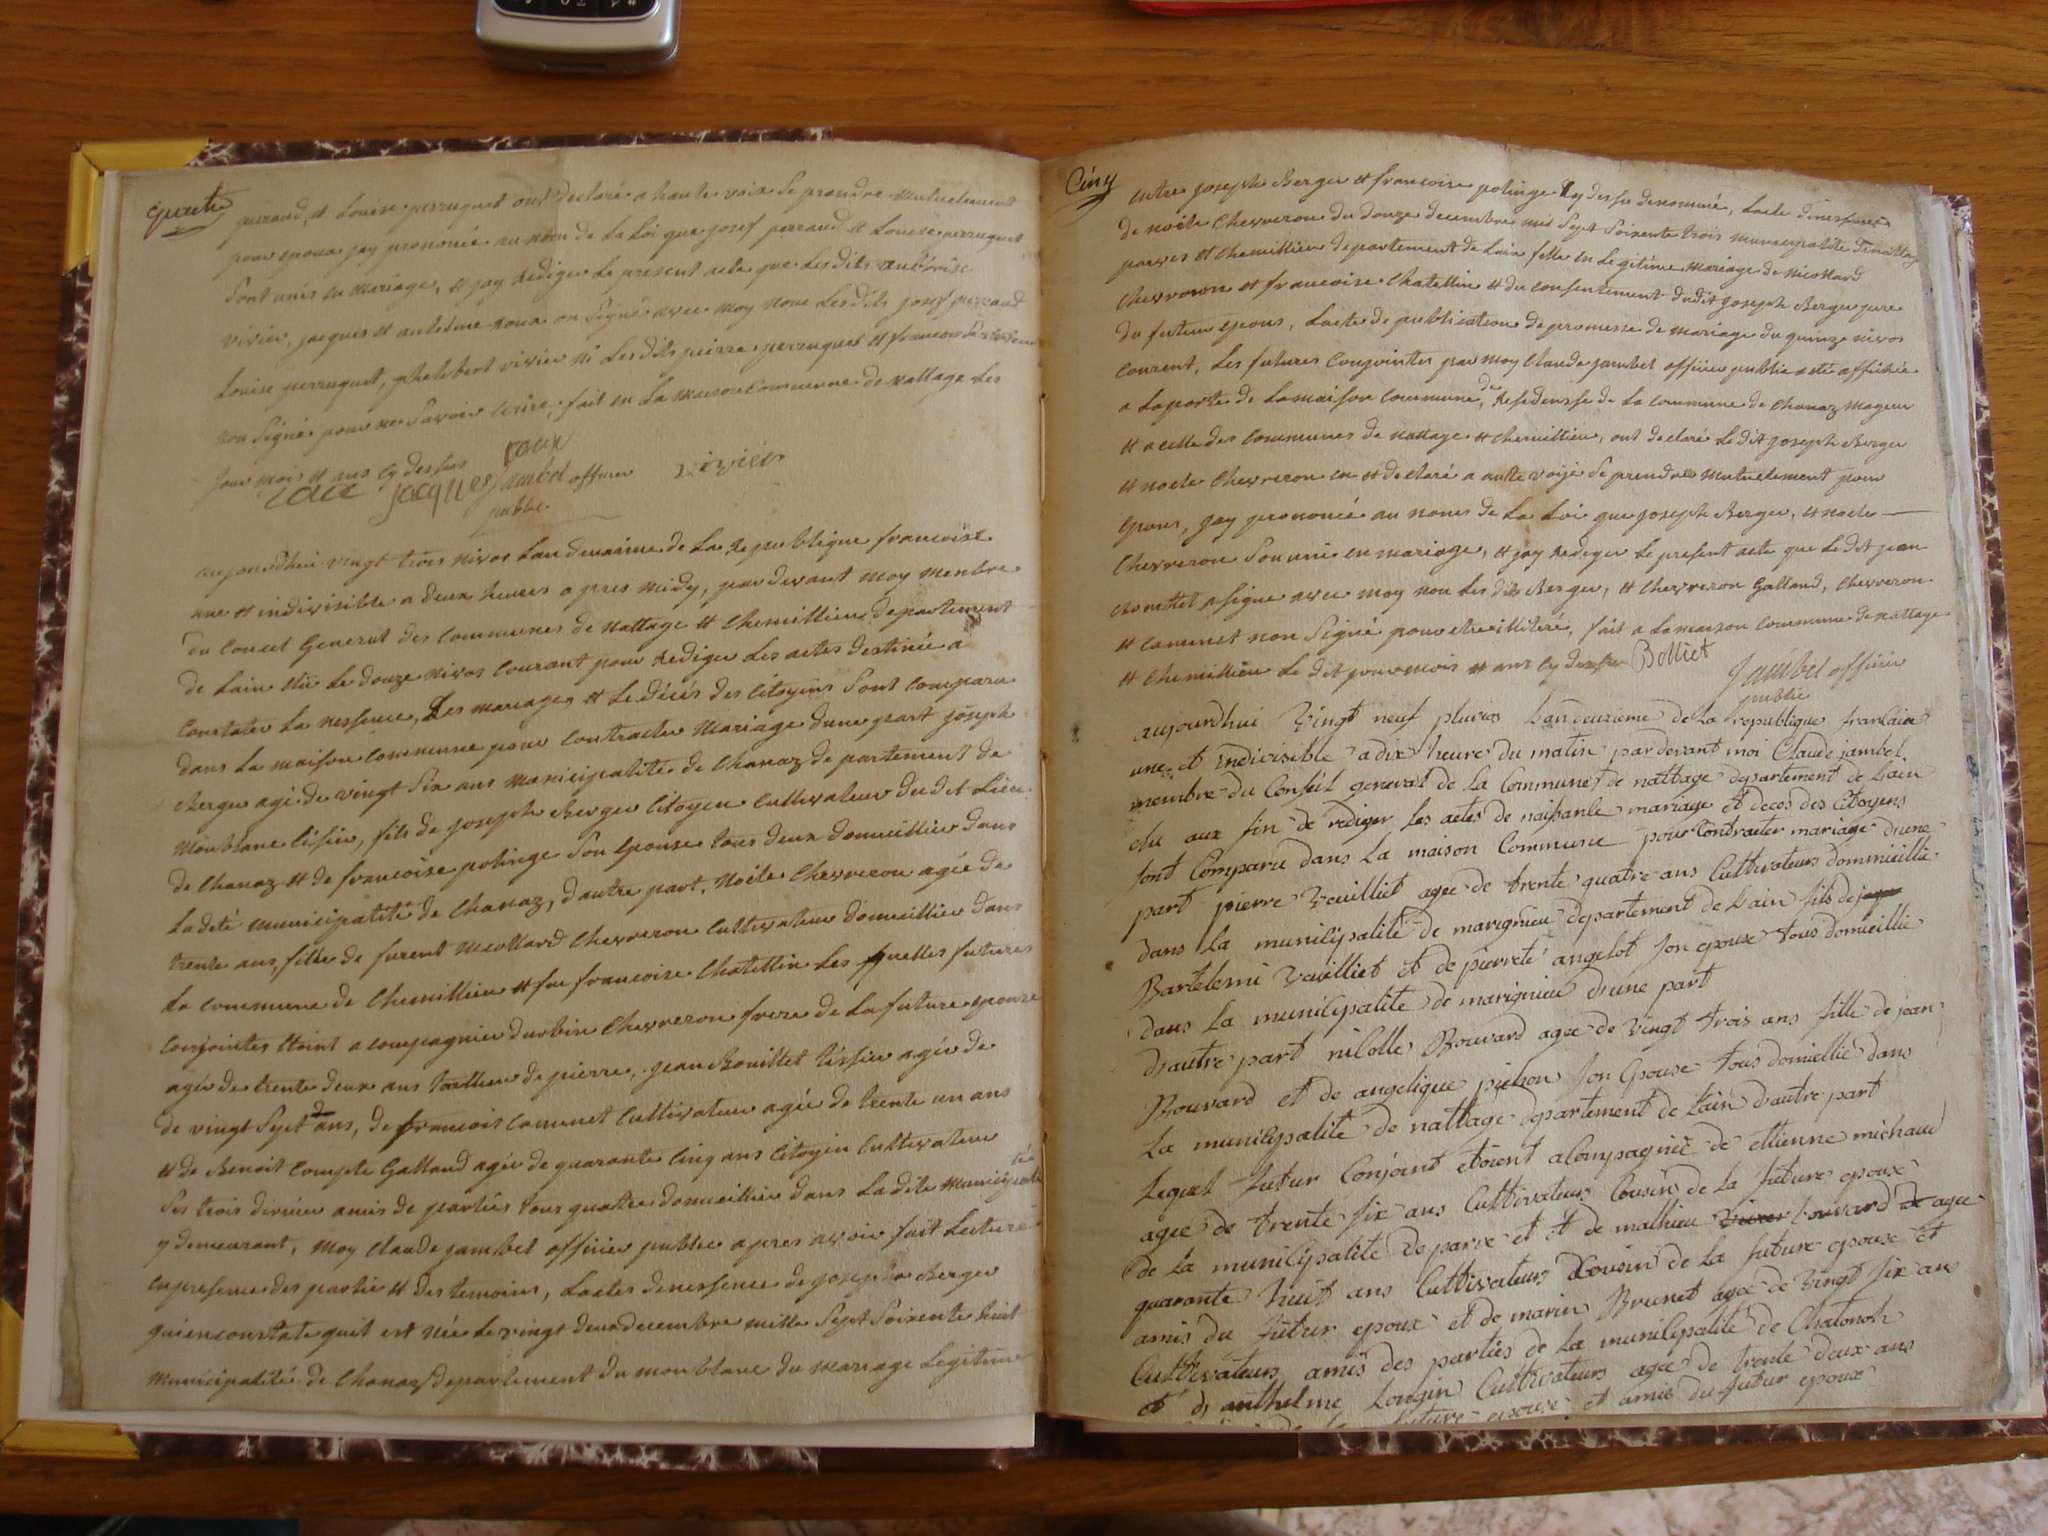 quatre
perraud, et Louise perruquet ont declaré a haute voix se prendre mutuelement
pour epoux jay prononcé au nom de La Loi que josef perraud et Louise perruquet
sont unis en mariage, et jay rediger le present acte que les dits
vivier, jaques et antelme roux on signé avec moy non les dits josef perraud
Louise perruquet, philebert vivier ni les dits pierre perruquet et francois
non signé pour ne savoir écrire, fait en la maison commune de nattage les
jour mois et ans cy dessus
roux
jacques jambel officier vivier
public
aujourdhui vingt trois nivos lan deuxieme de la republique francoise
une et indivisible a deux heures apres midy, par devant moy menbre
du consel General des communes de nattage et chemillieu departement
de Lain élü le douze nivos courant pour rediger les actes destinée a
constater la nessence, Les mariages et le décés des citoyens sont comparu
dans la maison commune pour contracter mariage dune part joseph
Berger agé de vingt six ans municipalité de chanaz departement de
monblanc tisier, fils de joseph Berger citoyen cultivateur du dit Lieu
de chanaz et de francoise polinge son epouse tous deux domicillier dans
la dite municipalité de chanaz, dautre part, noele chevreron agée de
trente ans, fille de furent nicollard chevreron cultivateur domicillier dans
la commune de chemillieu et fue francoise chatellin les quelles futures
conjointes étoint acompagnier durbin chevreron frere de la future epouse
agée de trente deux ans tallieur de pierre, jean Bouillet tissier agée de
de vingt sept ans, de francois camenet cultivateur agée de trente un ans
et de Benoit compte Galland agée de quarante cinq ans citoyen cultivateur
ses trois dernier amis de parties tous quatre domicillier dans ladite municipalité
y demeurant, moy claude jambel officier public apres avoir fait lecture
en presence des partie et des temoins, lactes denessence de joseph Berger
qui en constate quil est née le vingt deux decembre mille sept soixente huit
municipalité de chanaz departement du mon blanc du mariage Legitime
Cinq
entre joseph Berger et francoise polinge cy dessu denommé, Lacte denessence
de noéle chevreron du douze decembre mil sept soixente trois municipalité de nattage
parves et chemillieu departement de Lain fille en Legitime mariage de nicollard
chevreron et francoise chatellin et du consentement dudit joseph Berger pere
du futur epous, Lacte de publication de promesse de mariage du quinze nivos
courent, Les futures conjointes par moy claude jambel officier public a été affichée
a la porte de la maison commune, de residensse de la commune de chanaz mageur
et a celle des communes de nattage et chemillieu, ont declaré le dit joseph Berger
et noele chevreron on et declaré a aute voije se prendre mutuelement pour
epous, jay prononcé au noms de La Loi que joseph Berger, et noele
chevreron son uni en mariage, et jay rediger le present acte que le dit jean
Bouillet a signe avec moy non les dits Berger, et chevreron Galland, chevreron
et camenet non signé pour etre illiteré, fait a la maison commune de nattage
et chemillieu le dit jour mois et ans cy dessu Bolliet
jambel officier
public
aujourdhui vingt neuf pluvios Lan deuxieme de la republique francaise
une et indivisible a dix heure du matin par devant moi Claude jambel
membre du Conseil general de la Commune de nattage departement de Lain
élu aux fin de rediger les actes de naissance mariage et deces des Citoyens
sont Comparu dans La maison Commune pour Contracter mariage dune
part pierre veuilliet agee de trente quatre ans Cultivateurs dommicillie
dans la municipalite de marignieu departement de Lain fils de
Bartelemi veuilliet et de pierrete angelot son epouse tous domicillie
dans La municipalite de marignieu dune part
dautre part nicolle Bouvard agee de vingt trois ans fille de jean
Bouvard et de angelique pichon son epouse tous domicillie dans
La municipalite de nattage departement de Lain dautre part
Lequel futur Conjoint etoient aCompagnie de ettienne michaud
agee de trente six ans Cultivateurs Cousin de la future epouse
de la municipalite de parve et et de mathieu bouvard agee
quarante huit ans Cultivateurs Cousin de la future epouse et
amis du futur epoux et de marin Brunet agee de vingt six ans
Cultivateurs amis des parties de la municipalite de Chatonoh
et d anthelme Longin Cultivateurs agee de trente deux ans
future epouse et amis du futur epoux